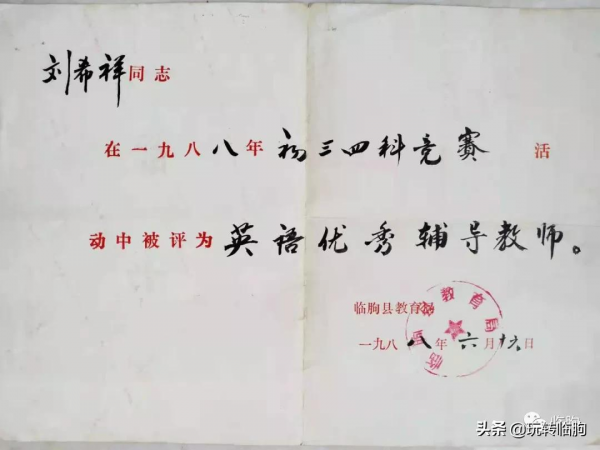 刘希祥同志
在一九八八年初三四科竞赛活
动中被评为英语优秀辅导教师。
临朐县教育局
一九八八年六月十六日
临朐县教育局
临朐
头条 @玩转临朐